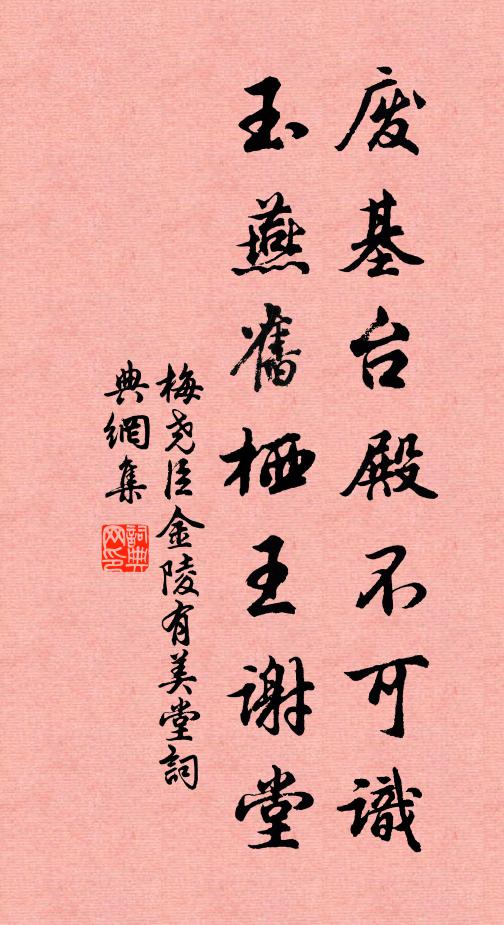 废基台殿不可識
玉燕舊栖王谢堂
梅尧臣金陵有美堂詞
典網集
詞典
网印